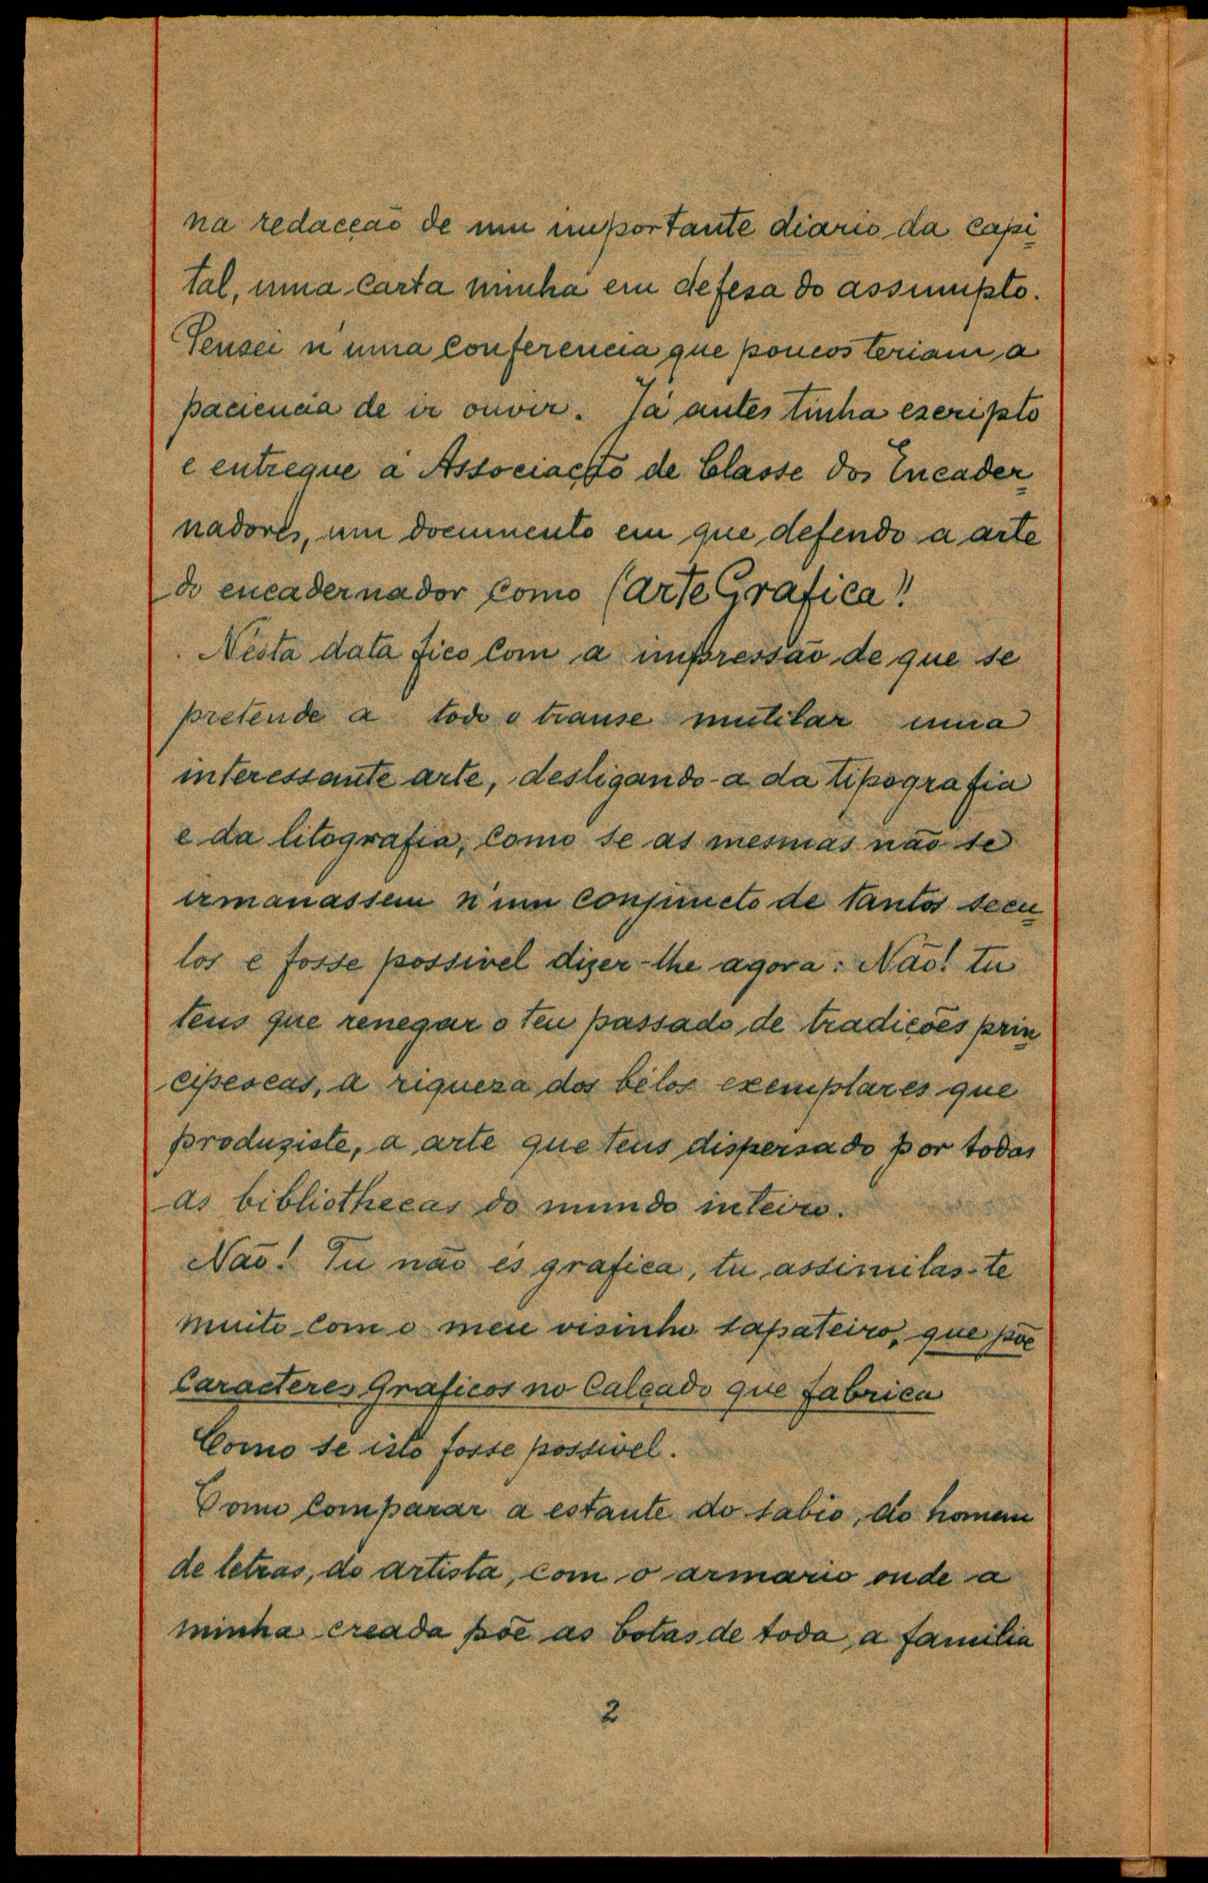 na redacção de um importante diario da capi
tal, uma carta minha em defesa do assumpto.
Pensei n'uma conferencia que poucos teriam a
paciencia de ir ouvir. Já antes tinha escripto
e entregue á Associação de Classe dos Encader
nadores, um documento em que defendo a arte
do encadernador como (Arte Grafica)!
Nésta data fico com a impressão de que se
pretende a todo o transe mutilar uma
interessante arte, desligando-a da tipografia
e da litografia, como se as mesmas não se
irmanassem n'um conjuncto de tantos secu
los e fosse possivel dizer-lhe agora: Não! tu
tens que renegar o teu passado de tradicões prin
cipescas, a riquesa dos bélos exemplares que
produziste, a arte que tens dispersado por todas
as bibliothecas do mundo inteiro.
Não! Tu não és grafica, tu assimilas-te
muito com o meu visinho sapateiro, que põe
Caracteres Graficos no Calçado que fabrica
Como se isto fosse possivel.
Como comparar a estante do sabio, do homem
de letras, do artista, com o armario onde a
minha creada põe as botas de toda a familia
2